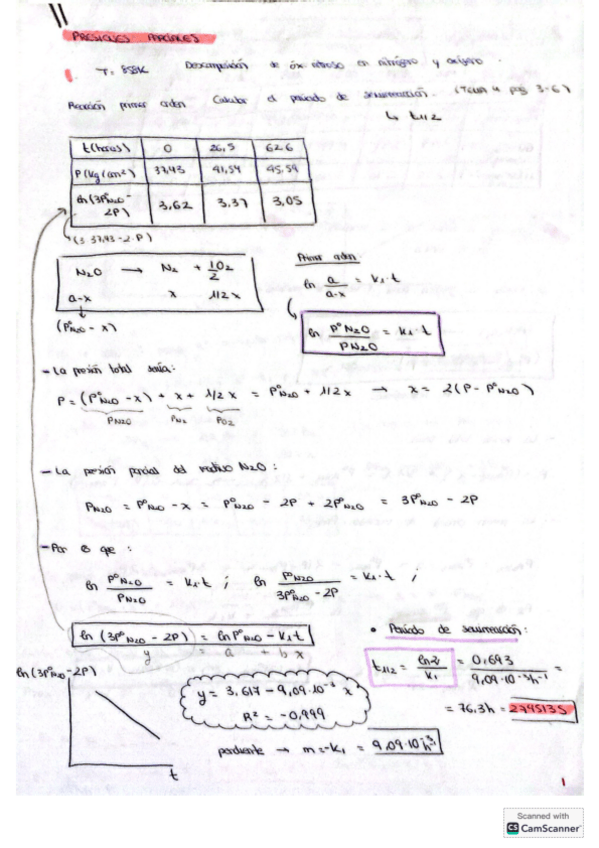 PRESIONES PARCIALES
1. T. 858K Descomposición de óx nitroso en nitrógeno y oxígeno.
Reacción primer orden Calcular el periodo de semirreacción. (Tema 4 pag 3-6)
↳ t1/2
t(horas) 0 26,5 62.6
P(kg/cm²) 37,43 41,54 45,59
ln(3P°N2O - 2P) 3,62 3,37 3,05
(3·37,43-2·P)
N2O → N2 + 1/2 O2
a-x x 1/2 x
(P°N2O - x)
Primer orden:
ln a/(a-x) = K1·t
ln P°N2O/PN2O = K1·t
- La presión total sería:
P = (P°N2O - x) + x + 1/2 x = P°N2O + 1/2 x → x = 2(P - P°N2O)
PN2O PN2 PO2
- La presión parcial del reactivo N2O:
PN2O = P°N2O - x = P°N2O - 2P + 2P°N2O = 3P°N2O - 2P
- Por lo que:
ln P°N2O/PN2O = K1·t ; ln P°N2O/(3P°N2O - 2P) = K1·t ;
ln (3P°N2O - 2P) = ln P°N2O - K1t
y = a + b x
• Periodo de semirreacción:
t1/2 = ln2/K1 = 0,693/(9,09·10⁻³h⁻¹) =
= 76,3h = 274513s
ln(3P°N2O - 2P)
t
y = 3,617 - 9,09·10⁻³ x
R² = -0,999
pendiente → m = -K1 = 9,09·10⁻³h⁻¹
1
Scanned with
CS CamScanner